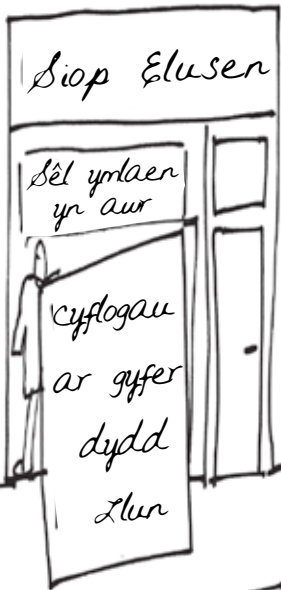 Siop Elusen
Sêl ymlaen
yn awr
cyflogau
ar gyfer
dydd
Llun